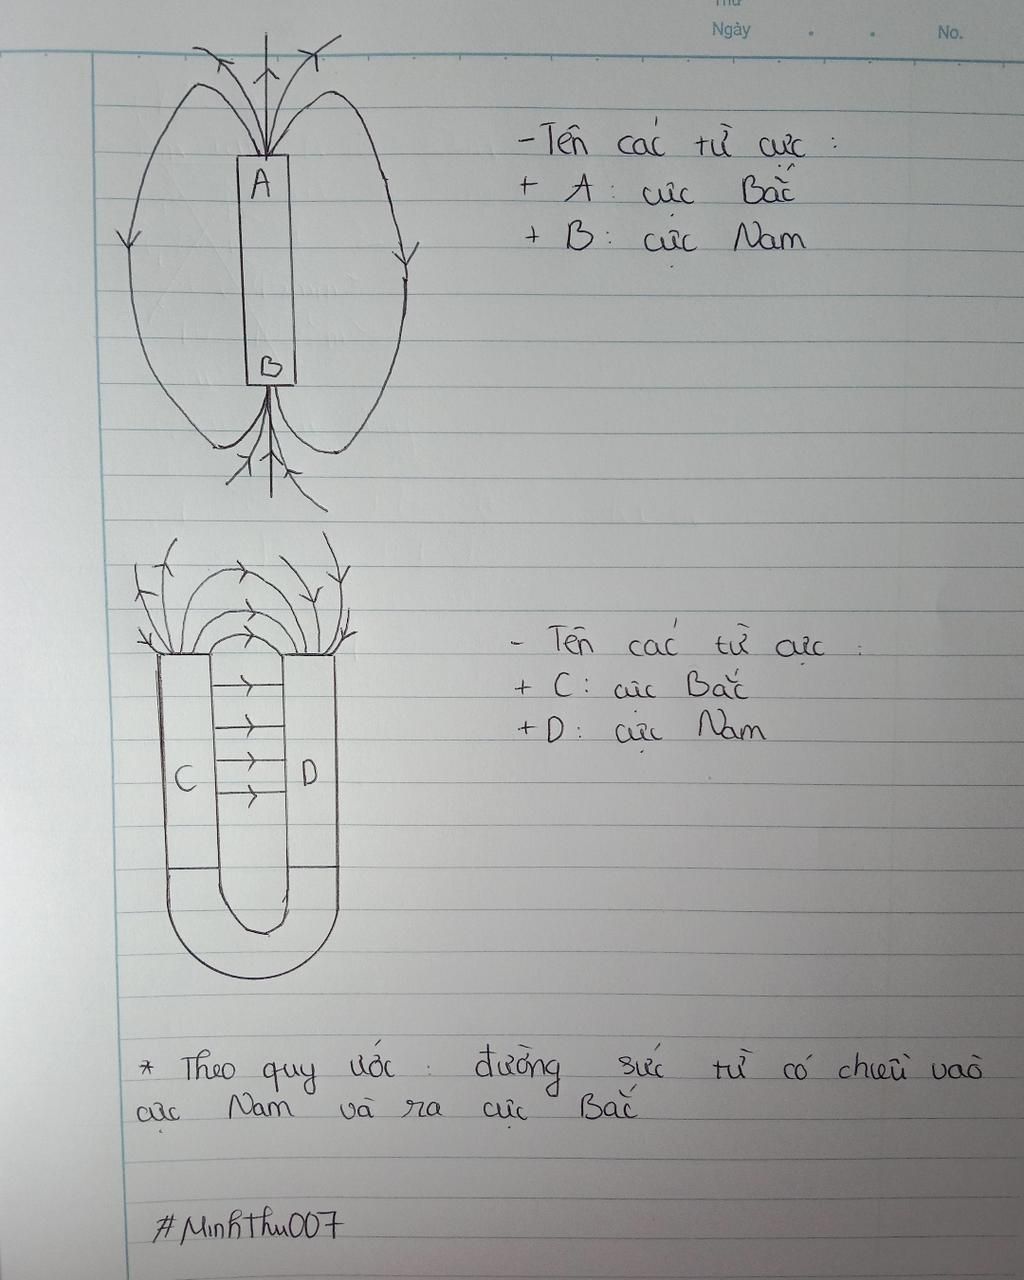 Thứ
Ngày . . No.
A
B
- Tên các từ cực :
+ A : cực Bắc
+ B : cực Nam
C D
- Tên các từ cực :
+ C : cực Bắc
+ D : cực Nam
* Theo quy ước : đường sức từ có chiều vào
cực Nam và ra cực Bắc
#Minhthu007